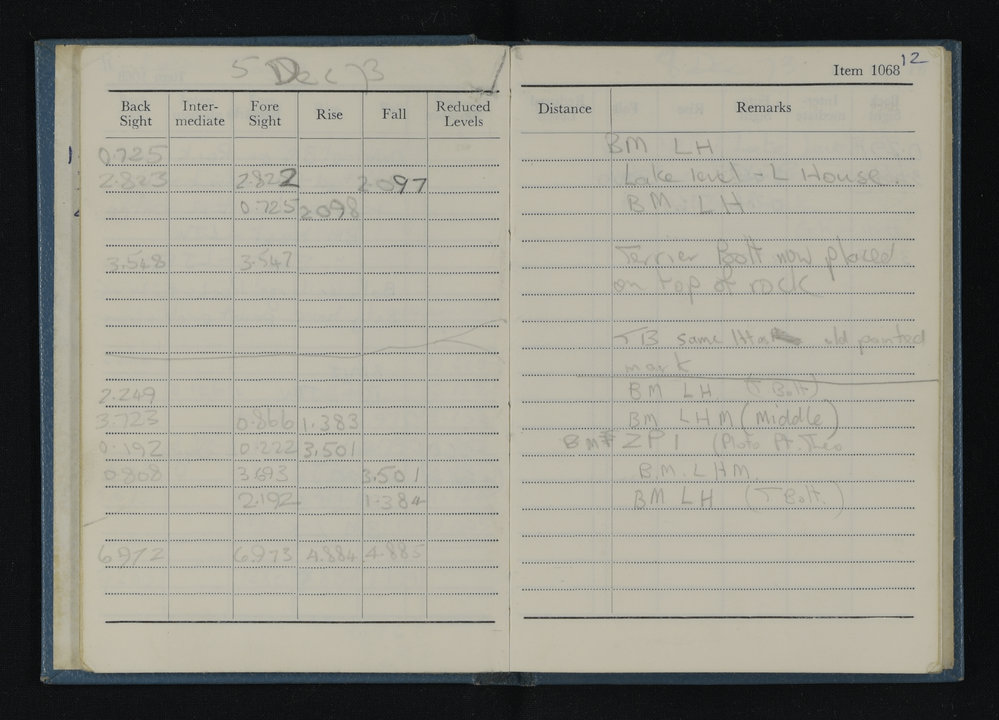 5 Dec 73
12
Item 1068
Back Sight Inter-mediate Fore Sight Rise Fall Reduced Levels Distance Remarks
1 0.725 BM LH
2.823 2.822 2.097 Lake level - L House.
0.725 2.098 BM LH
3.548 3.547 Terrier Bolt now placed
on top of rock
TB same old painted
mark
2.249 BM LH (T Bolt)
3.723 0.866 1.383 BM LHM (Middle)
0.192 0.222 3.501 BM ZP1 (Photo Pt. Theo
0.808 3.693 3.501 B.M. LHM.
2.192 1.384 BM LH (T Bolt.)
6.972 6.973 4.884 4.885